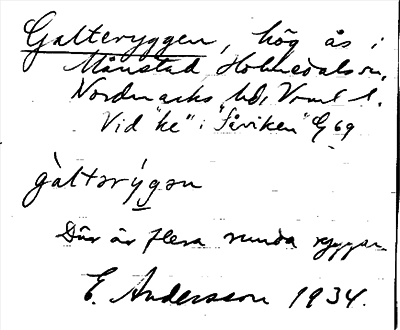 Galteryggen, hög ås i
Månstad Holmedals sn,
Nordmarks hd, Vrml l.
Vid "ke" i "Såviken" G 69
gàltərýgən
Där är flera runda ryggar
E. Andersson 1934.